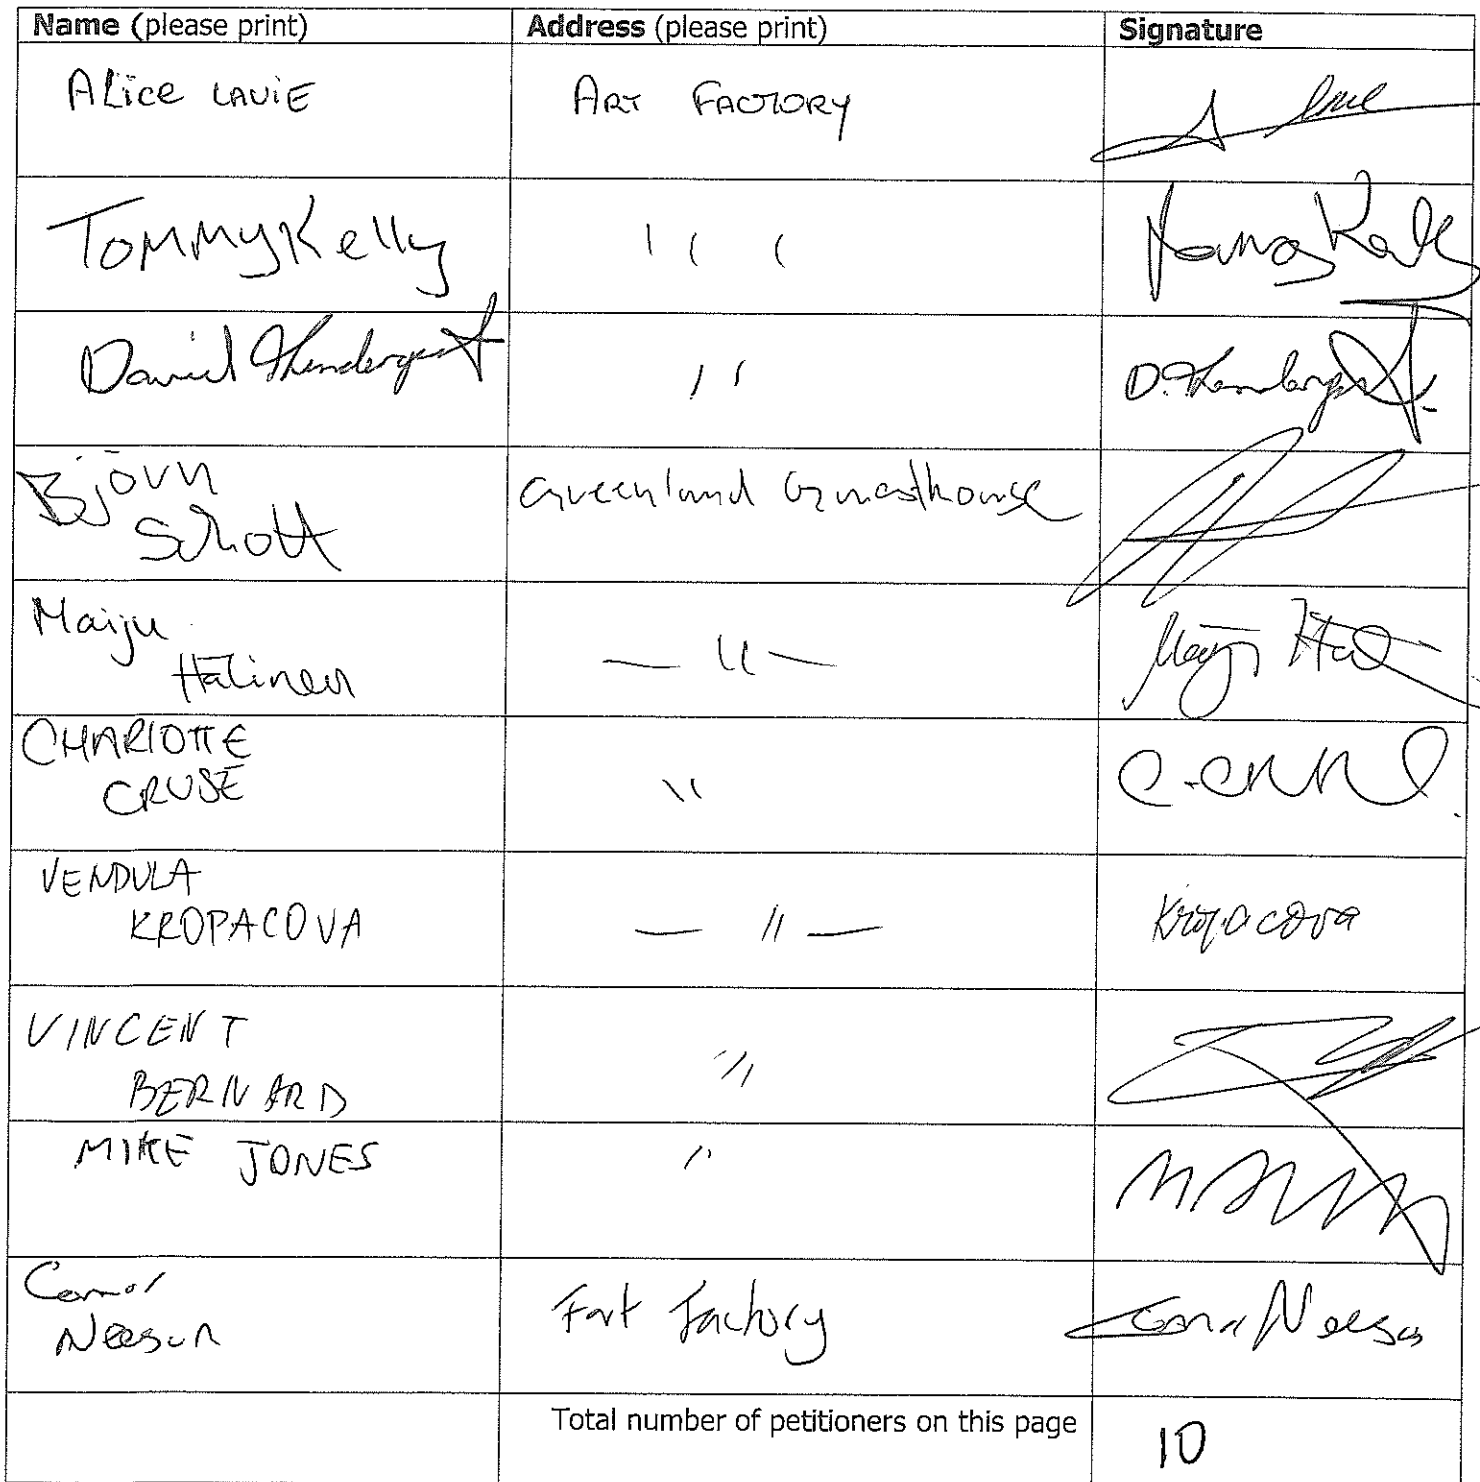 Name (please print) Address (please print) Signature
ALice LAVIE ART FACTORY
Tommy Kelly ' ' '
David ' '
Björn
Schott Greenland Guesthouse
Maiju
Hälinen — " —
CHARlOTTE
CRUSE "
VENDULA
KROPACOVA — " — Kropacova
VINCENT
BERNARD "
MIKE JONES "
Conor
Neeson Fart Factory Conor Neeson
Total number of petitioners on this page 10